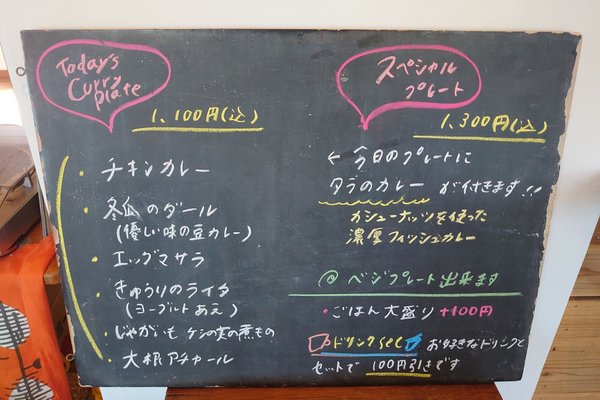 Today's
Curry
Plate
1,100円(込)
・チキンカレー
・冬瓜のダール
(優しい味の豆カレー)
・エッグマサラ
・きゅうりのライタ
(ヨーグルトあえ)
・じゃがいも ケシの実の煮もの
・大根アチャール
スペシャル
プレート
1,300円(込)
← 今日のプレートに
タラのカレー が付きます!!
カシューナッツを使った
濃厚フィッシュカレー
@ ベジプレート出来ます
・ごはん大盛り +100円
ドリンクset お好きなドリンクと
セットで 100円引きです